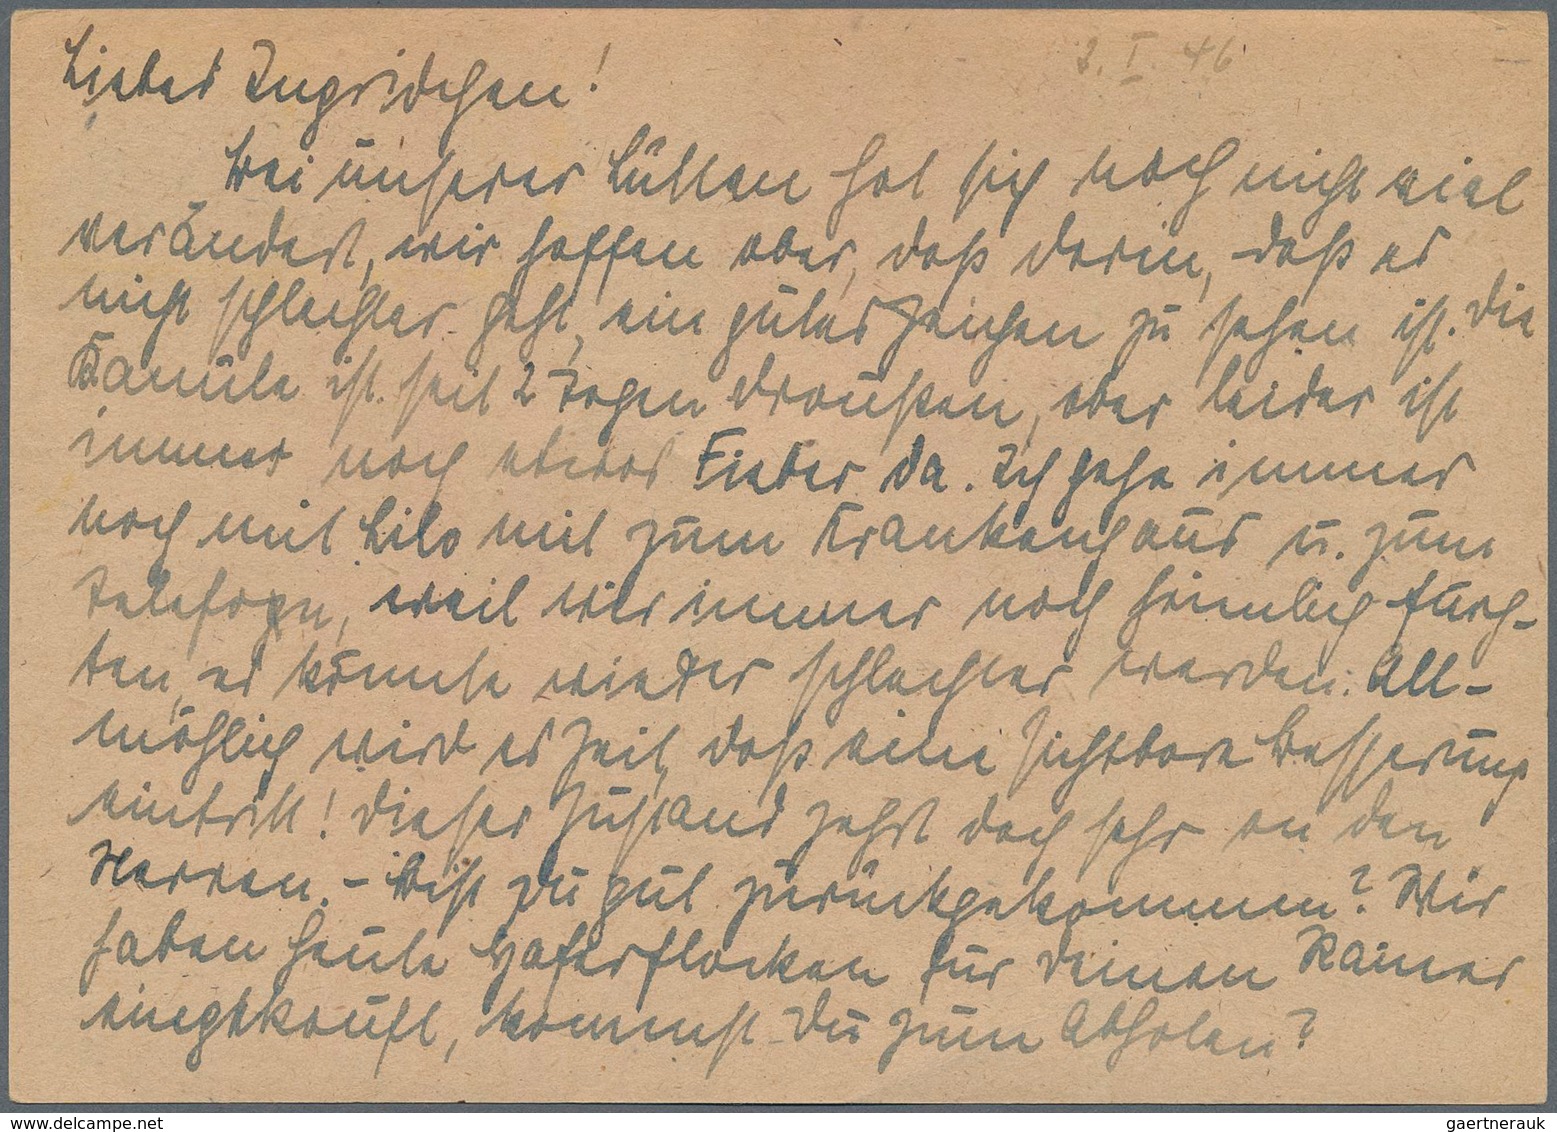 2. I. 46
Liebes Ingridchen!
Bei unserer Lütten hat sich noch nicht viel
verändert, wir hoffen aber, daß darin, daß es
nicht schlechter geht, ein gutes Zeichen zu sehen ist. Die
Kanüle ist seit 2 Tagen draußen, aber leider ist
immer noch etwas Fieber da. Ich gehe immer
noch mit Lilo mit zum Krankenhaus u. zum
Telefon, weil wir immer noch heimlich fürch-
ten, es könnte wieder schlechter werden. All-
mählich wird es Zeit, daß eine sichtbare Besserung
eintritt! Dieser Zustand zehrt doch sehr an den
Nerven. – Bist Du gut zurückgekommen? Wir
haben heute Haferflocken für deinen Rainer
eingekauft, kommst Du zum Abholen?
gaertnerauk